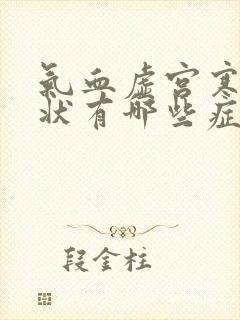 氣血虛宮寒
狀有哪些症
段金柱